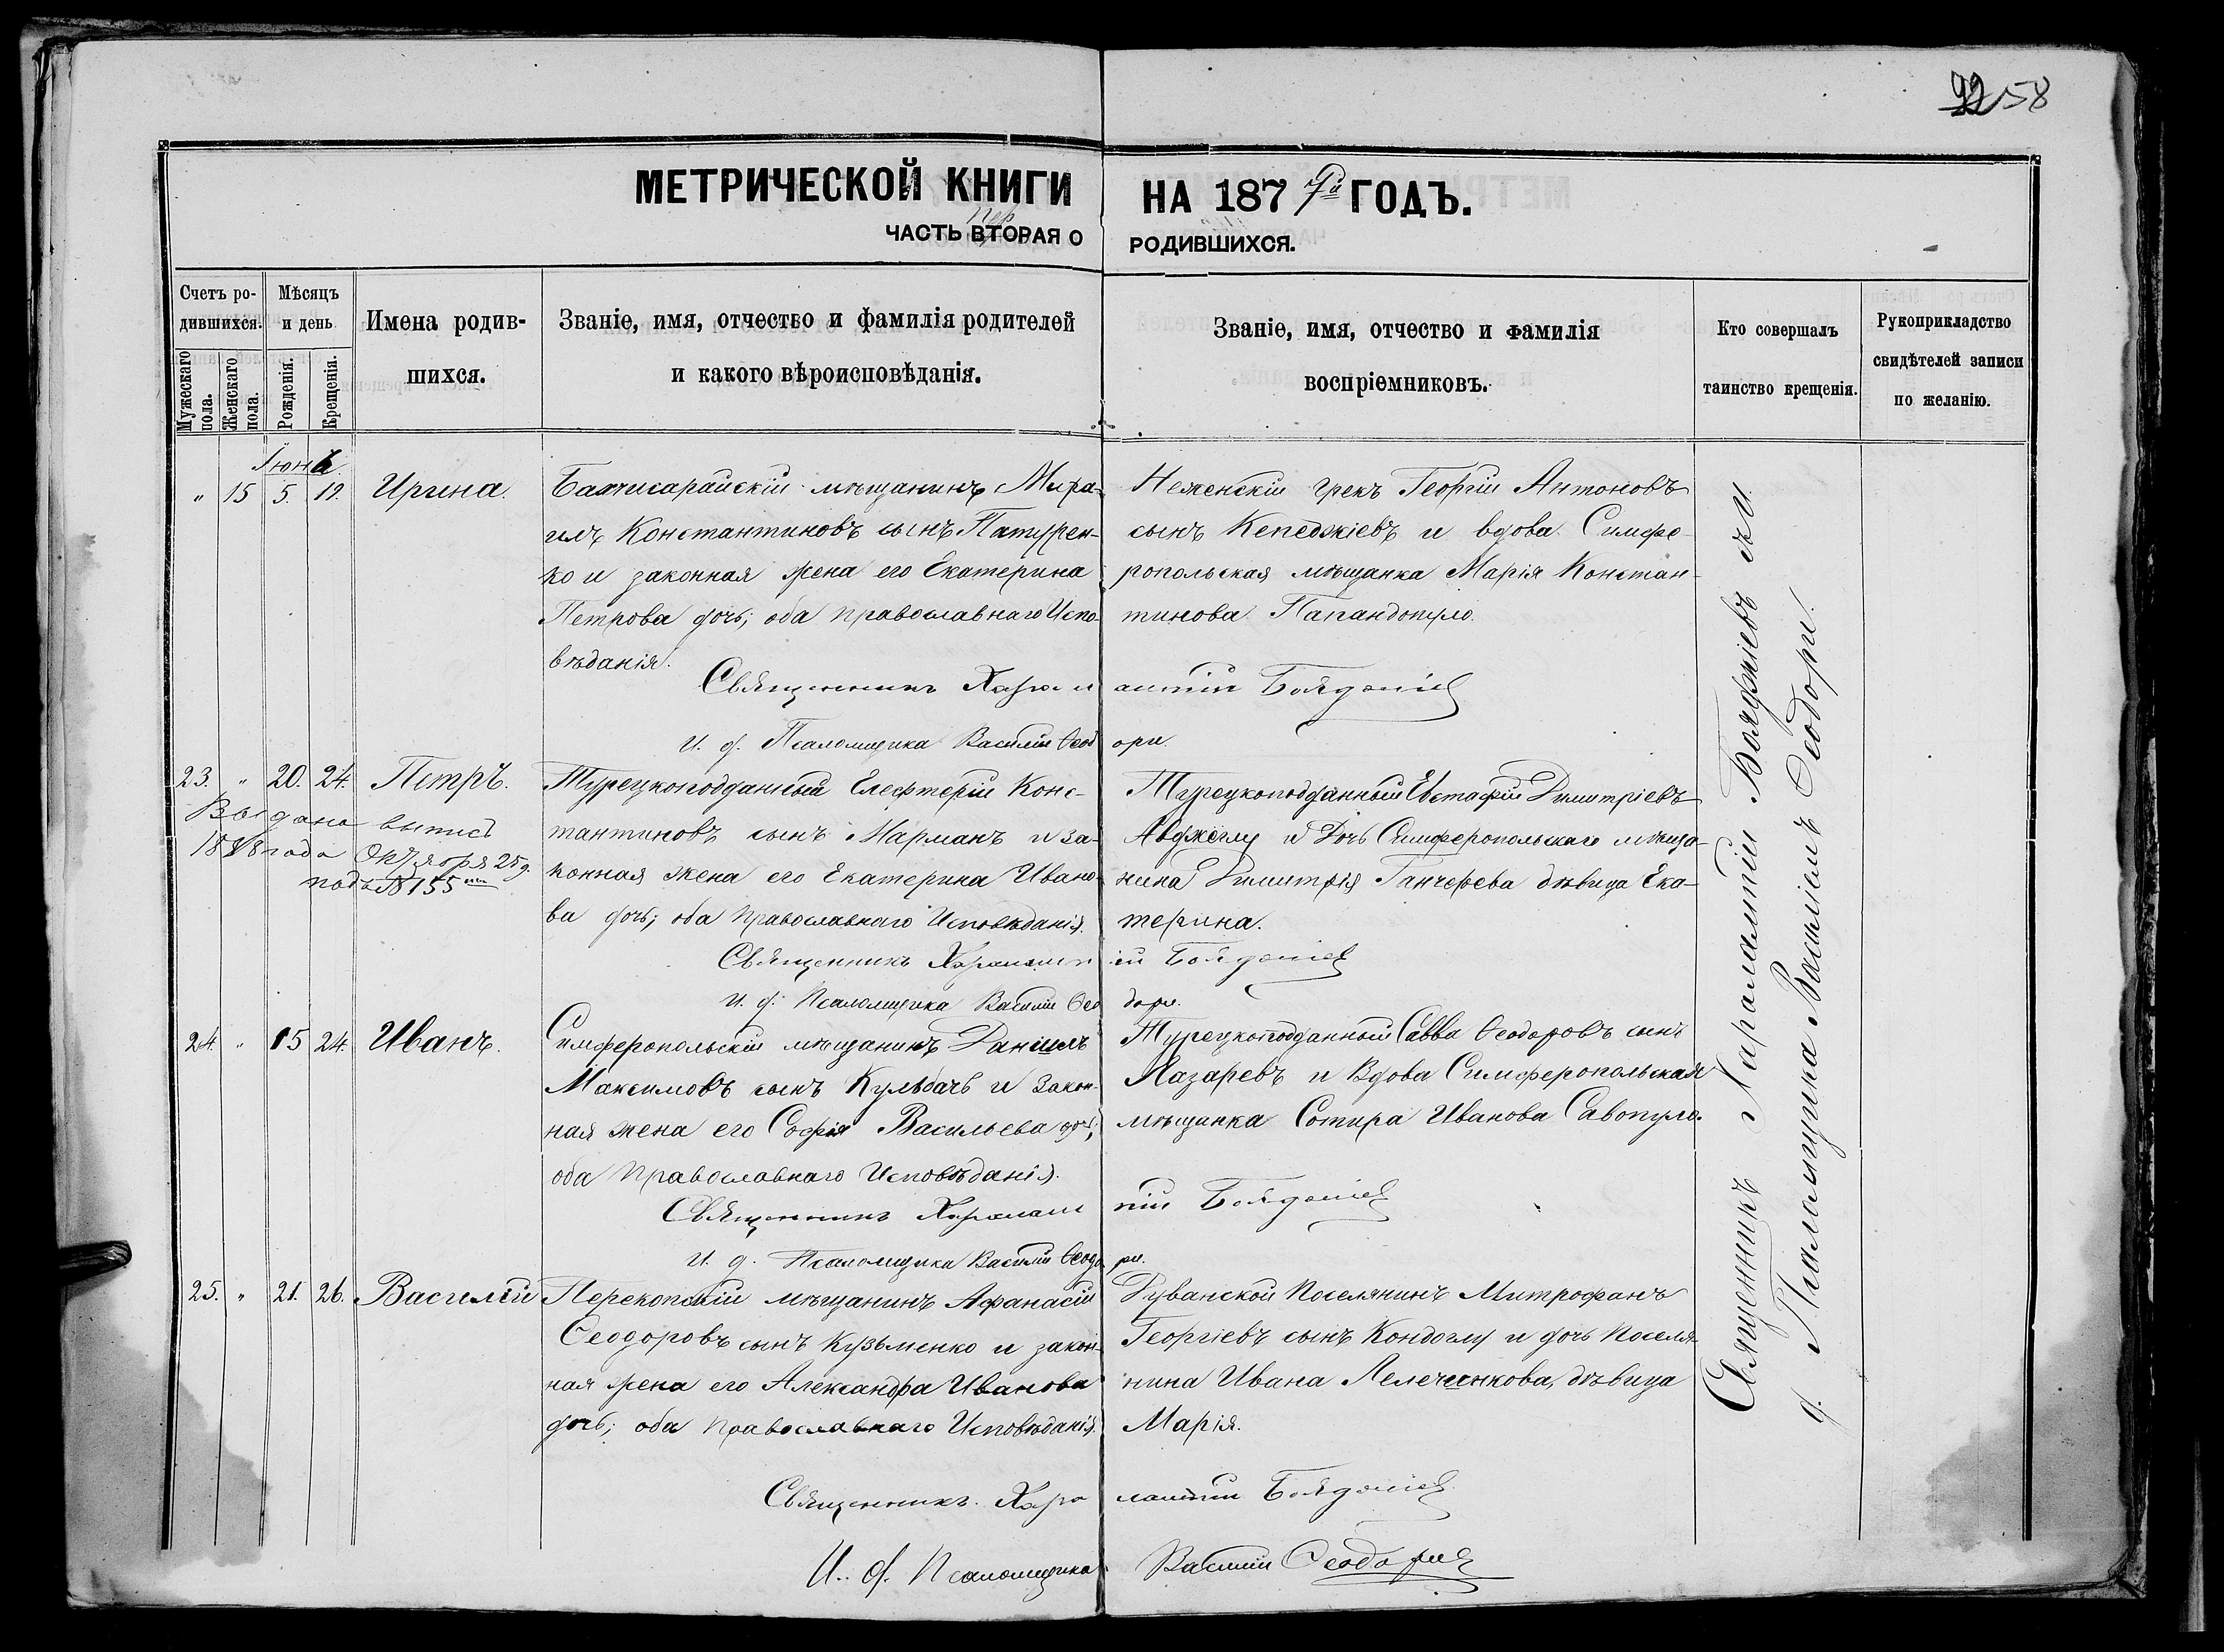 92 58
МЕТРИЧЕСКОЙ КНИГИ НА 1877й ГОДЪ.
пер
ЧАСТЬ ВТОРАЯ О РОДИВШИХСЯ.
Счетъ родившихся.
Мужескаго пола.
Женскаго пола.
Мѣсяцъ и день
Рожденія.
Крещенія.
Имена родившихся.
Званіе, имя, отчество и фамилія родителей
и какого вѣроисповѣданія.
Званіе, имя, отчество и фамилія
воспріемниковъ.
Кто совершалъ
таинство крещенія.
Рукоприкладство
свидѣтелей записи
по желанію.
Іюнь
" 15 5. 19. Ирина.
Бахчисарайскій мѣщанинъ
Константиновъ сынъ
ко и законная жена его Екатерина
Петрова дочь; оба Православнаго Испо-
вѣданія.
Неженскій грекъ Георгій Антоновъ
сынъ Кепеджіевъ и вдова Симфе-
ропольская мѣщанка Марія Констан-
тинова Папандопуло.
Священникъ Харалампій Бояджіев
И. д. Псаломщика Василій Ѳеодори.
23. " 20. 24. Петръ.
Выдана выпись
1888 года Октября 25 д.
подъ № 155
Турецкоподданный Елефтерій Конс-
тантиновъ сынъ Марманъ и за-
конная жена его Екатерина Ивано-
ва дочь; оба Православнаго Исповѣданія.
Турецкоподданный Евстафій Димитріевъ
Авджоглу и Дочь Симферопольскаго мѣща-
нина Димитрія Ганчефева дѣвица Ека-
терина.
Священникъ Харалампій Бояджіев
И. д. Псаломщика Василій Ѳеодори.
24. " 15 24. Иванъ.
Симферопольскій мѣщанинъ Даніилъ
Максимовъ сынъ Кульбачъ и закон-
ная жена его Софія Васильева дочь;
оба Православнаго Исповѣданія.
Турецкоподданный Савва Ѳеодоровъ сынъ
Лазаревъ и Вдова Симферопольская
мѣщанка Сотира Иванова Савопуло.
Священникъ Харалампій Бояджіев
И. д. Псаломщика Василій Ѳеодори.
25. " 21. 26. Василій
Перекопскій мѣщанинъ Афанасій
Ѳеодоровъ сынъ Кузьменко и закон-
ная жена его Александра Иванова
дочь; оба Православнаго Исповѣданія.
Дуванской Поселянинъ Митрофанъ
Георгіевъ сынъ Кондоглу и дочь Поселя-
нина Ивана Лелеченкова, дѣвица
Марія.
Священникъ Харалампій Бояджіев
И. д. Псаломщика Василій Ѳеодори
Священникъ Харалампій Бояджіевъ и И.
д. Псаломщика Василій Ѳеодори.